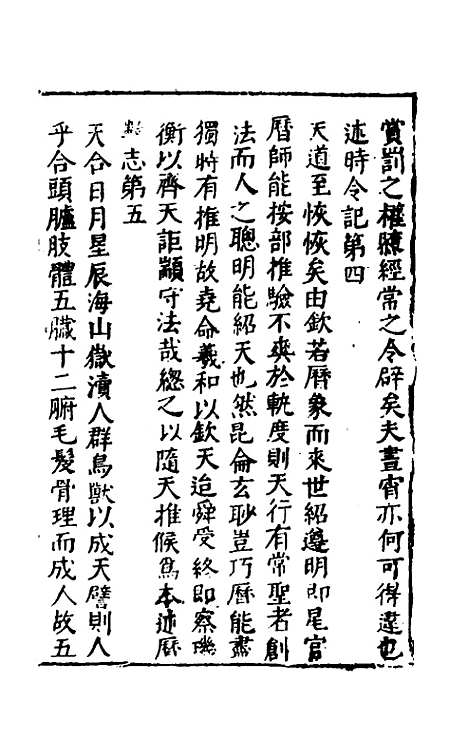 賞罰之權隳經常之令辟矣夫晝宵亦何可得違也
述時令記第四
天道至恢恢矣由欽若曆象而來世紹遵明即星官
曆師能按部推驗不爽於軌度則天行有常聖者創
法而人之聰明能紹天也然昆侖玄眇豈巧曆能盡
獨時有推明故堯命羲和以欽天迨舜受終即察璣
衡以齊天詎顓守法哉總之以隨天推候爲本述曆
志第五
天合日月星辰海山嶽瀆人群鳥獸以成天譬則人
乎合頭臚肢體五臟十二腑毛髮骨理而成人故五